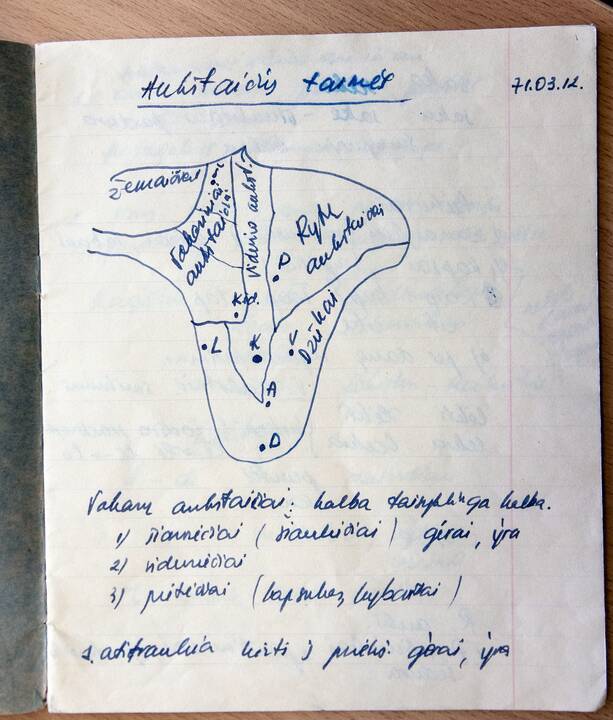 Aukštaičių tarmės
71.03.12.
Žemaičiai
Vakariniai aukštaičiai
Vidurio aukšt.
Ryt. aukštaičiai
P
Kėd.
L
K
V
Dzūkai
A
D
Vakarų aukštaičiai: kalba taisyklinga kalba.
1) šiauriečiai (šiauliečiai) gérai, ýra
2) viduriečiai
3) pietiečiai (kapsukas, kybartai)
1. atitraukia kirtį į priekį gérai, ýra